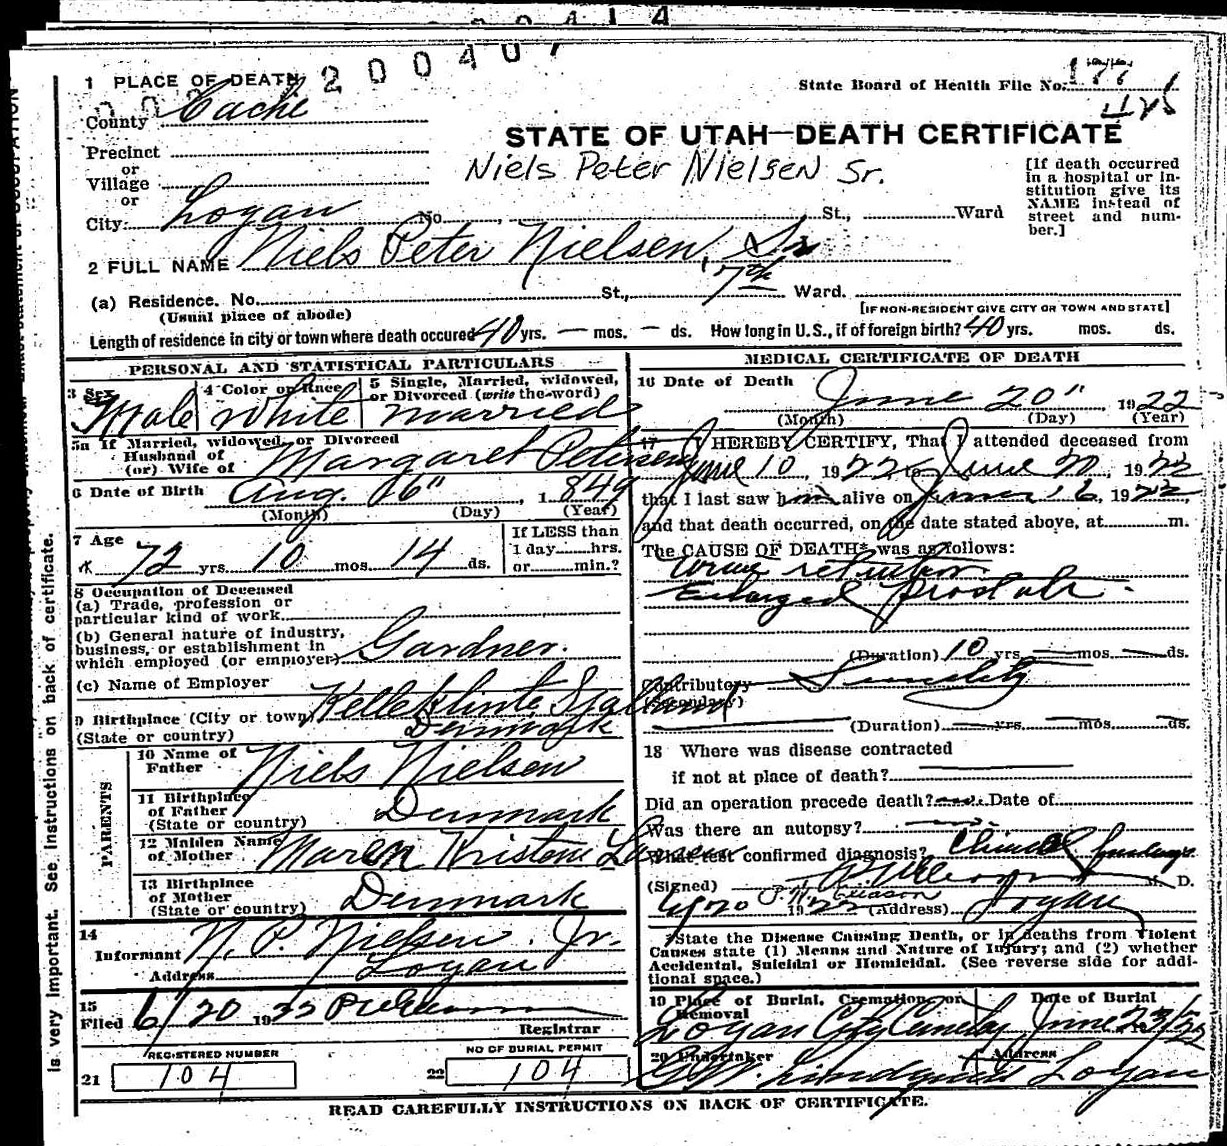 0 0 4 1 4
2 0 0 4 0 7
1 PLACE OF DEATH
State Board of Health File No. 177
425
County Cache
STATE OF UTAH—DEATH CERTIFICATE
Precinct
Niels Peter Nielsen Sr.
or
Village
or
City Logan No. , St., Ward
[If death occurred in a hospital or institution give its NAME instead of street and number.]
2 FULL NAME Niels Peter Nielsen, Sr
(a) Residence. No. St., 7th Ward.
(Usual place of abode)
[IF NON-RESIDENT GIVE CITY OR TOWN AND STATE]
Length of residence in city or town where death occured 40 yrs. — mos. — ds. How long in U.S., if of foreign birth? 40 yrs. mos. ds.
PERSONAL AND STATISTICAL PARTICULARS
3 Sex Male
4 Color or Race White
5 Single, Married, widowed, or Divorced (write the word) married
5a If Married, widowed, or Divorced
Husband of
(or) Wife of Margaret Petersen
6 Date of Birth Aug. 16" , 1849
(Month) (Day) (Year)
7 Age
72 yrs. 10 mos. 14 ds.
If LESS than
1 day hrs.
or min.?
8 Occupation of Deceased
(a) Trade, profession or
particular kind of work
(b) General nature of industry,
business, or establishment in
which employed (or employer) Gardner.
(c) Name of Employer
9 Birthplace (City or town)
(State or country) Denmark
PARENTS
10 Name of
Father Niels Nielsen
11 Birthplace
of Father
(State or country) Denmark
12 Maiden Name
of Mother Maren Kristine Larsen
13 Birthplace
of Mother
(State or country) Denmark
14
Informant N. P. Nielsen Jr.
Address Logan
15
Filed 6/20 1922
Registrar
REGISTERED NUMBER
21 104
NO OF BURIAL PERMIT
22 104
MEDICAL CERTIFICATE OF DEATH
16 Date of Death June 20" , 1922
(Month) (Day) (Year)
17 I HEREBY CERTIFY, That I attended deceased from
June 10, 1922 to June 20, 1922
that I last saw him alive on June 16, 1922,
and that death occurred, on the date stated above, at m.
The CAUSE OF DEATH* was as follows:
Urine retention
Enlarged prostate.
(Duration) 10 yrs. — mos. — ds.
Contributory Senility
(Secondary)
(Duration) — yrs. — mos. — ds.
18 Where was disease contracted
if not at place of death?
Did an operation precede death? Date of
Was there an autopsy?
What test confirmed diagnosis? Clinical findings
(Signed) M. D.
1922 (Address) Logan
*State the Disease Causing Death, or in deaths from Violent
Causes state (1) Means and Nature of Injury; and (2) whether
Accidental, Suicidal or Homicidal. (See reverse side for addi-
tional space.)
19 Place of Burial, Cremation, or Removal Date of Burial
Logan City Cemetery June 23/22
20 Undertaker Address
Lindquist Logan
READ CAREFULLY INSTRUCTIONS ON BACK OF CERTIFICATE.
is very important. See instructions on back of certificate.